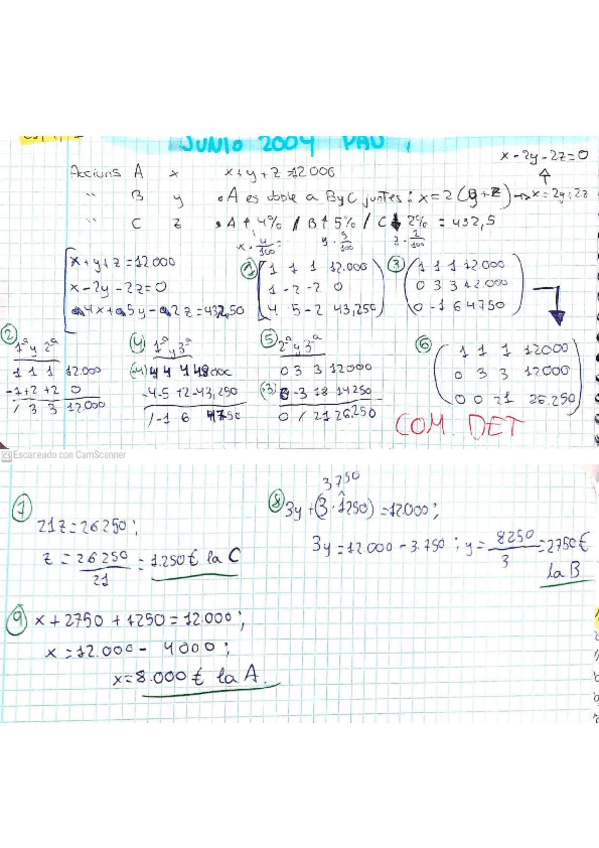 JUNIO 2004 PAU
x - 2y - 2z = 0
Accions A x x + y + z = 12000
" B y • A es doble a B y C juntes: x = 2(y + z) → x = 2y + 2z
" C z • A ↑ 4% / B ↑ 5% / C ↓ 2% = 432,5
x · 4/100 = y · 5/100 z · 2/100
x + y + z = 12.000
x - 2y - 2z = 0
4x + 5y - 2z = 432,50
① 1 1 1 12.000
1 -2 -2 0
4 5 -2 43,250
③ 1 1 1 12.000
0 3 3 12.000
0 -1 6 4750
② 1ª y 2ª
1 1 1 12.000
-1 +2 +2 0
/ 3 3 12.000
④ 1ª y 3ª
(4) 4 4 4 48000
-4 -5 +2 -43,250
/ -1 6 4750
⑤ 2ª y 3ª
0 3 3 12000
(3) 0 -3 18 14250
0 / 21 26.250
⑥ 1 1 1 12000
0 3 3 12000
0 0 21 26.250
COM. DET
CS Escaneado con CamScanner
⑦ 21z = 26250;
z = 26250/21 = 1.250€ la C
3750
⑧ 3y + (3 · 1250) = 12.000;
3y = 12.000 - 3.750; y = 8250/3 = 2750€
la B
⑨ x + 2750 + 1250 = 12.000;
x = 12.000 - 4000;
x = 8.000€ la A.